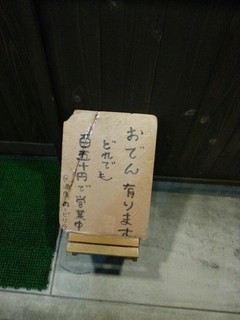 おでん有ります
どれでも
百五十円で営業中